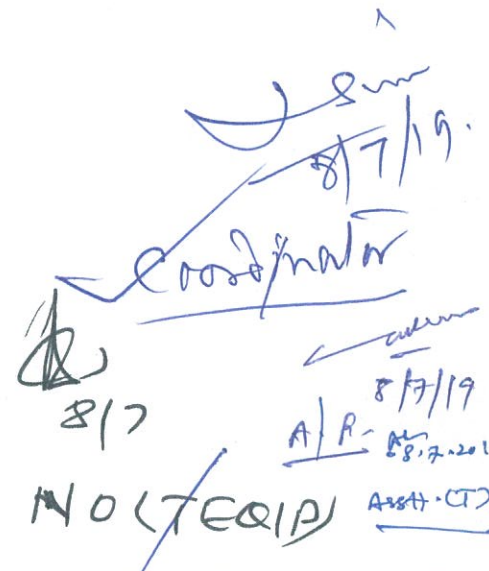 8/7/19.
Coordinator
8/7/19
8/7
A/R
8.7.201
NO(TEQIP)
Asstt.(T)